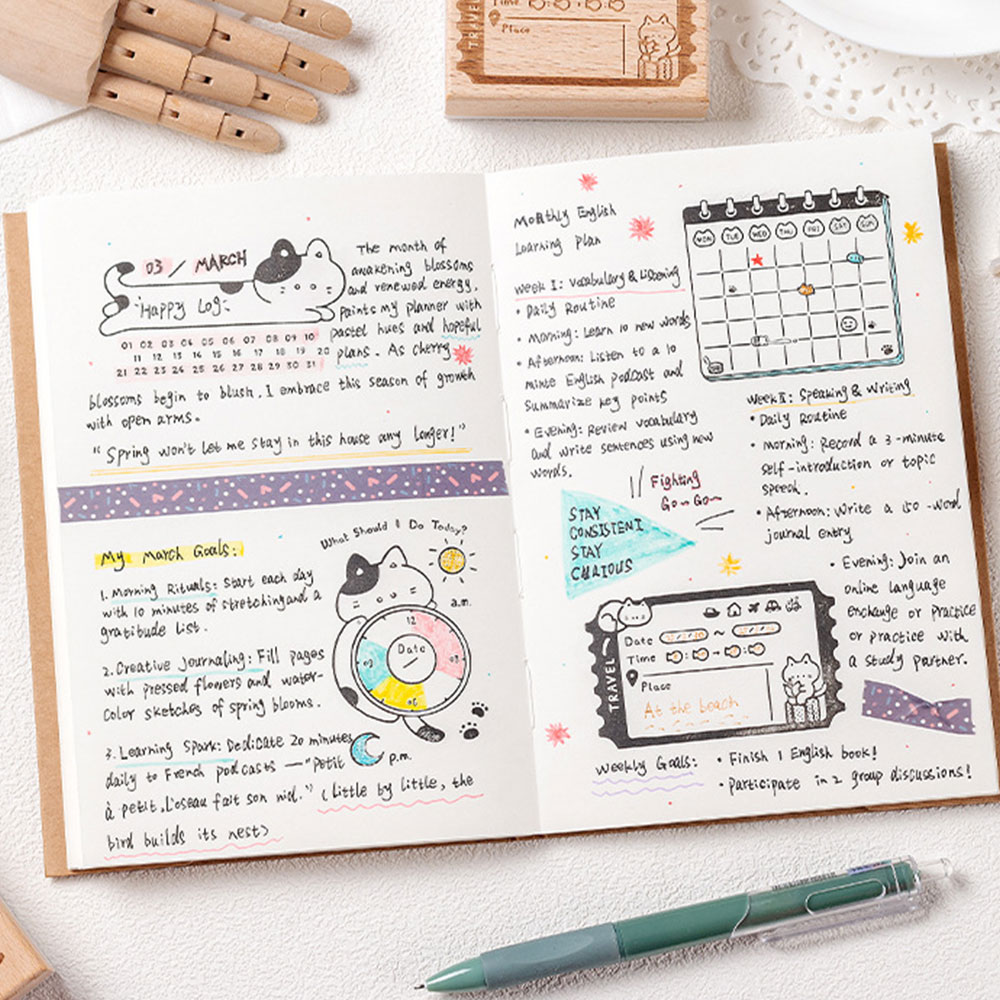 Time
Place
TRAVEL
03 / MARCH
Happy Log:
01 02 03 04 05 06 07 08 09 10
11 12 13 14 15 16 17 18 19 20
21 22 23 24 25 26 27 28 29 30 31
The month of
awakening blossoms
and renewed energy,
paints my planner with
pastel hues and hopeful
plans. As cherry
blossoms begin to blush, I embrace this season of growth
with open arms.
"Spring won't let me stay in this house any longer!"
My March Goals:
1. Morning Rituals: Start each day
with 10 minutes of stretching and a
gratitude list.
2. Creative Journaling: Fill pages
with pressed flowers and water-
color sketches of spring blooms.
3. Learning Spark: Dedicate 20 minutes
daily to French podcasts — "Petit
à petit, l'oseau fait son nid." (little by little, the
bird builds its nest)
What Should I Do Today?
a.m.
12
03
06
09
Date
p.m.
Monthly English
Learning Plan
Week I: Vocabulary & Listening
• Daily Routine
• Morning: Learn 10 new words
• Afternoon: Listen to a 10
minte English podcast and
Summarize key points
• Evening: Review vocabulary
and write sentences using new
words.
MON TUE WED THU FRI SAT SUN
Week II: Speaking & Writing
• Daily Routine
• Morning: Record a 3-minute
self-introduction or topic
speech.
• Afternoon: Write a 150-word
journal entry
• Evening: Join an
online language
enchange or practice
or practice with
a study partner.
Fighting
Go~Go~
STAY
CONSISTENT
STAY
CURIOUS
TRAVEL
Date
~
Time
Place
At the beach
Weekly Goals:
• Finish 1 English book!
• Participate in 2 group discussions!